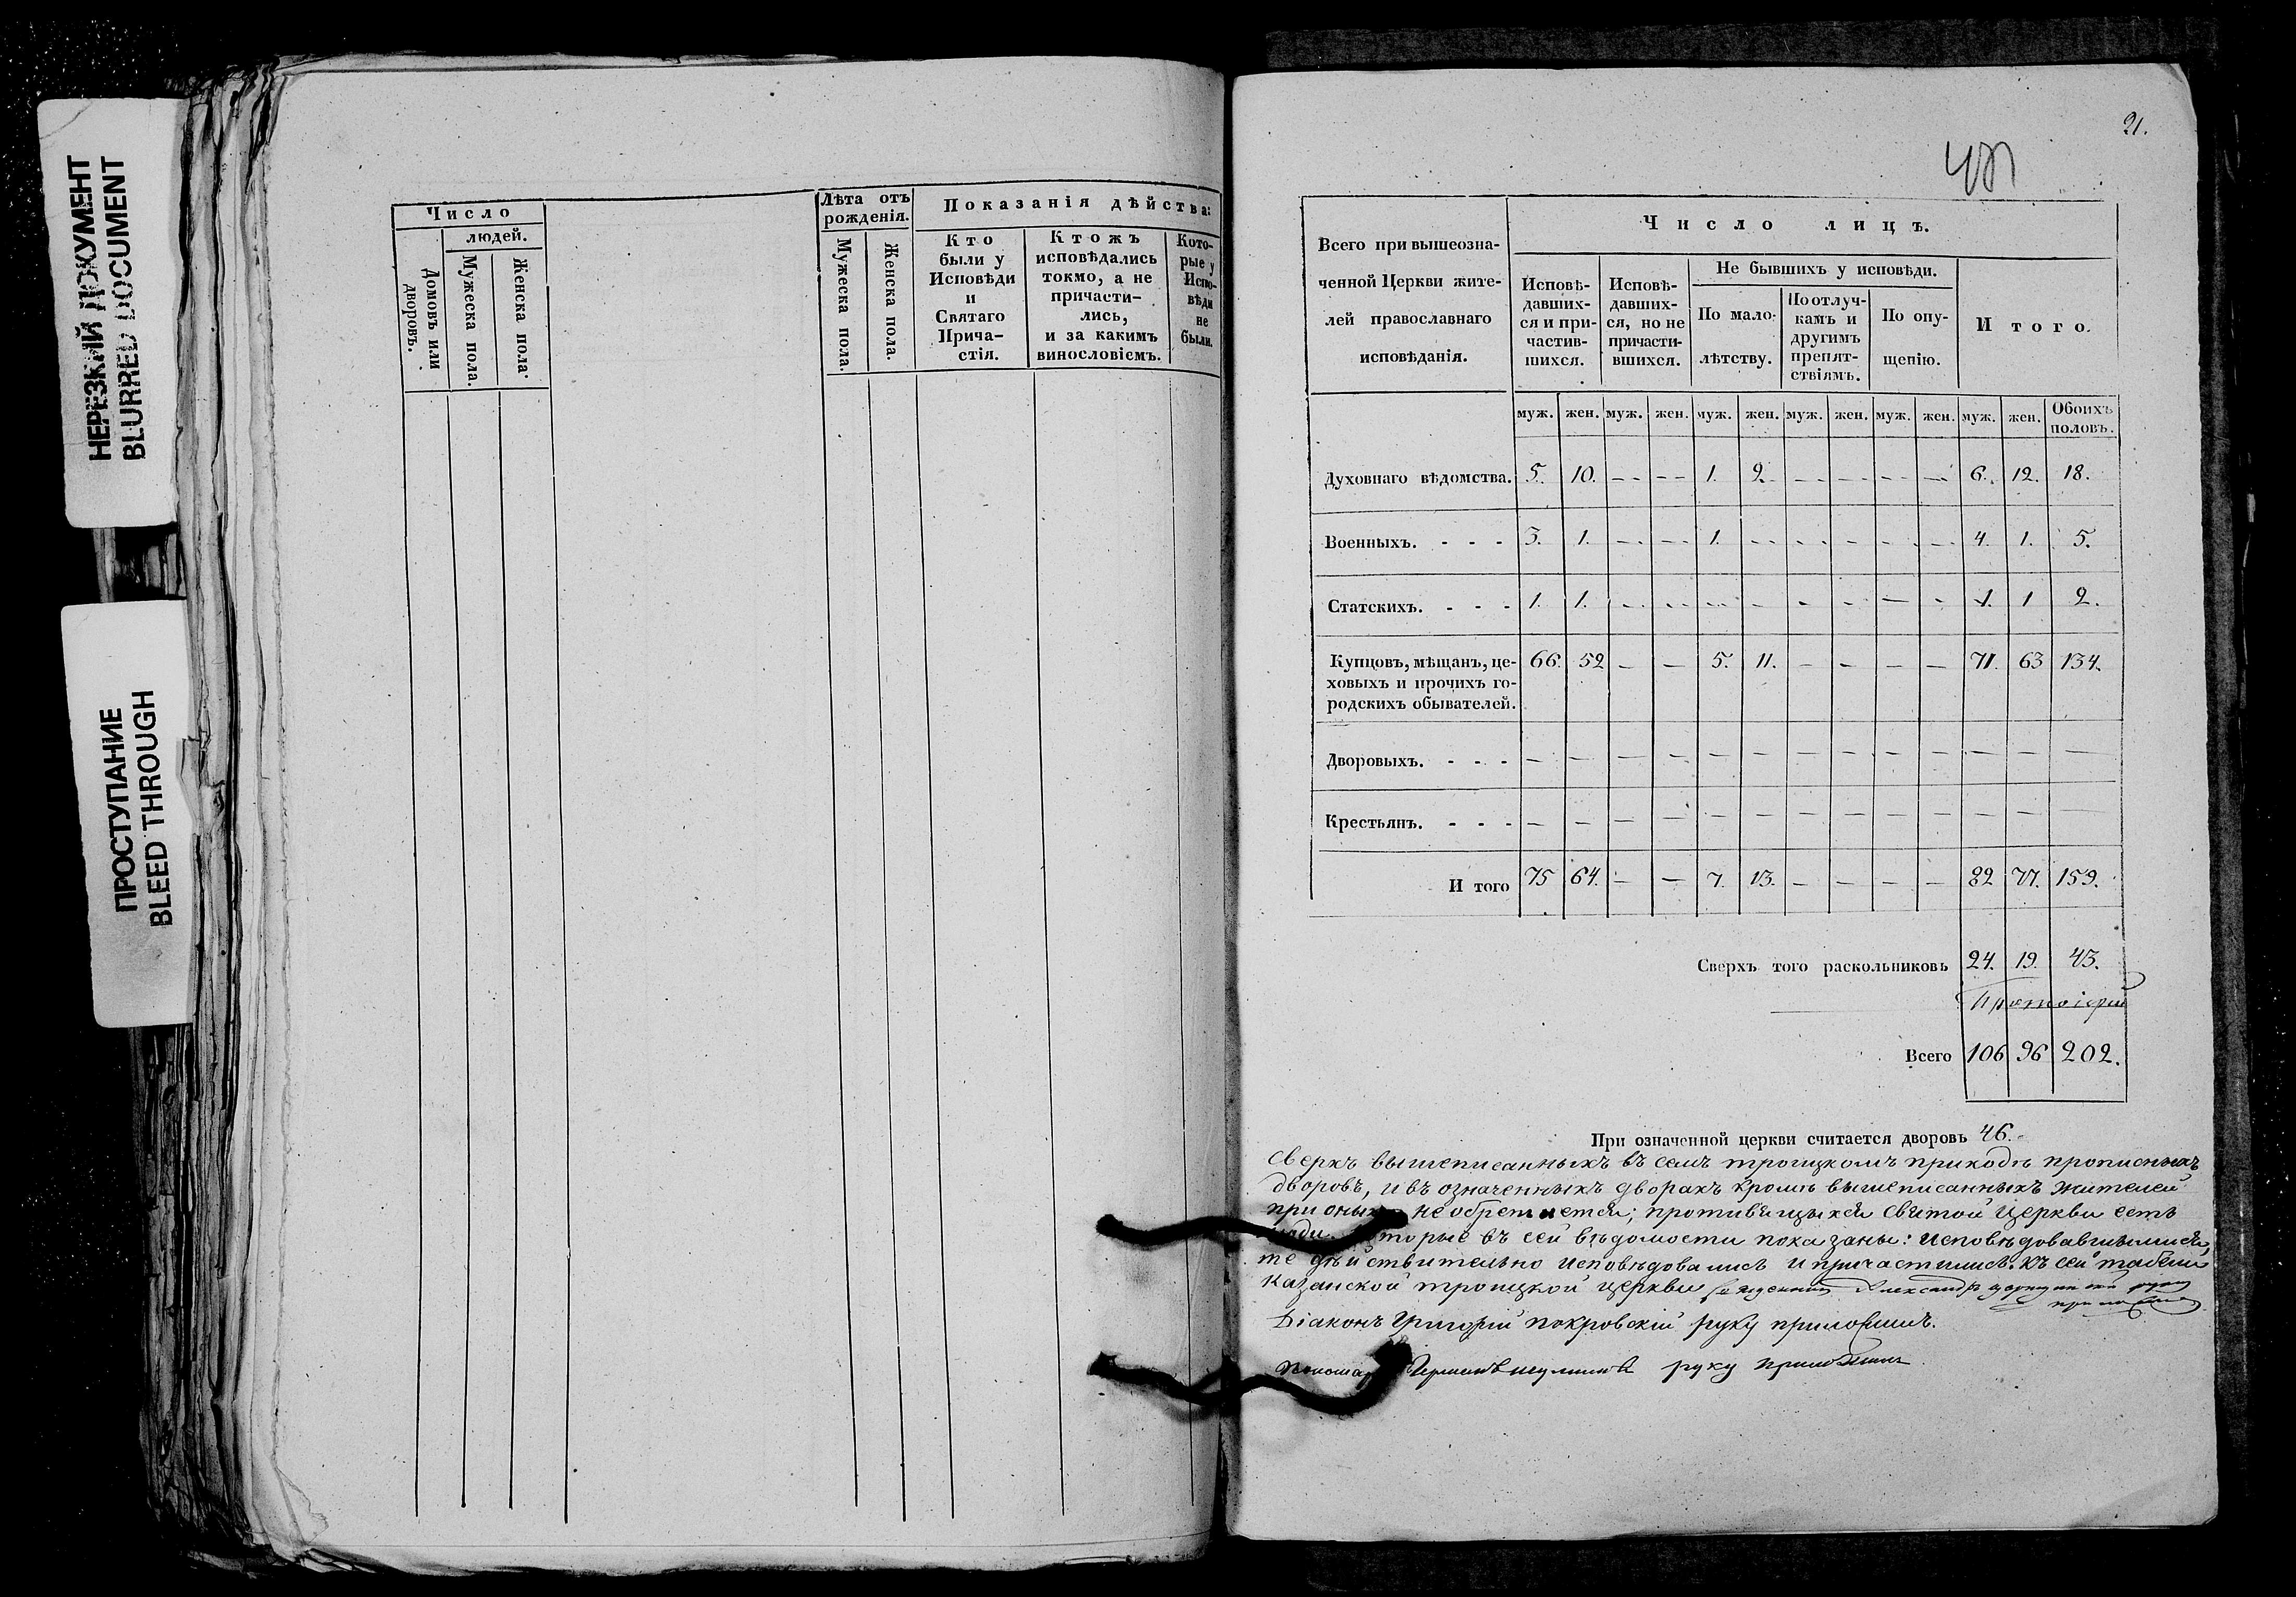 НЕРЕЗКИЙ ДОКУМЕНТ
BLURRED DOCUMENT
ПРОСТУПАНИЕ
BLEED THROUGH
Число
людей.
Домовъ или дворовъ.
Мужеска пола.
Женска пола.
Лѣта отъ рожденія.
Мужеска пола.
Женска пола.
Показанія дѣйства:
Кто были у Исповѣди и Святаго Прича-стія.
Ктожъ исповѣдались токмо, а не причасти-лись, и за какимъ винословіемъ.
Кото-рые у Испо-вѣди не были.
21.
Всего при вышеозна-
ченной Церкви жите-
лей православнаго
исповѣданія.
Число лицъ.
Исповѣ-давших-ся и при-частив-шихся.
Исповѣ-давших-ся, но не причасти-вшихся.
Не бывшихъ у исповѣди.
По мало-лѣтству.
По отлуч-камъ и другимъ препят-ствіямъ.
По опу-щенію.
И того.
муж. жен. муж. жен. муж. жен. муж. жен. муж. жен. муж. жен. Обоихъ половъ.
Духовнаго вѣдомства. 5. 10. - - 1. 2. - - - - 6. 12. 18.
Военныхъ. - - - 3. 1. - - 1. - - - - - 4. 1. 5.
Статскихъ. - - - 1. 1. - - - - - - - - 1. 1 2.
Купцовъ, мѣщанъ, це- 66. 52 - - 5. 11. - - - - 71. 63 134.
ховыхъ и прочихъ го-
родскихъ обывателей.
Дворовыхъ. - - - - - - - - - - - - - - - -
Крестьянъ. - - - - - - - - - - - - - - - -
И того 75 64. - - 7. 13. - - - - 82 77. 159.
Сверхъ того раскольниковъ 24. 19. 43.
Протоіерей
Всего 106 96 202.
При означенной церкви считается дворовъ 46.
Сверхъ вышеписанныхъ въ семъ троицкомъ приходѣ прописныхъ
дворовъ, и въ означенныхъ дворахъ кромѣ вышеписанныхъ жителей
при оныхъ не обретается; противящихся Святой церкви есть
которые въ сей вѣдомости показаны: исповѣдовавшимися,
те дѣйствительно исповѣдовались и причастились. Къ сей табели
Казанской троицкой церкви Священникъ Александръ руку
приложилъ
Діаконъ Григорій покровскій руку приложилъ.
Пономарь руку приложилъ